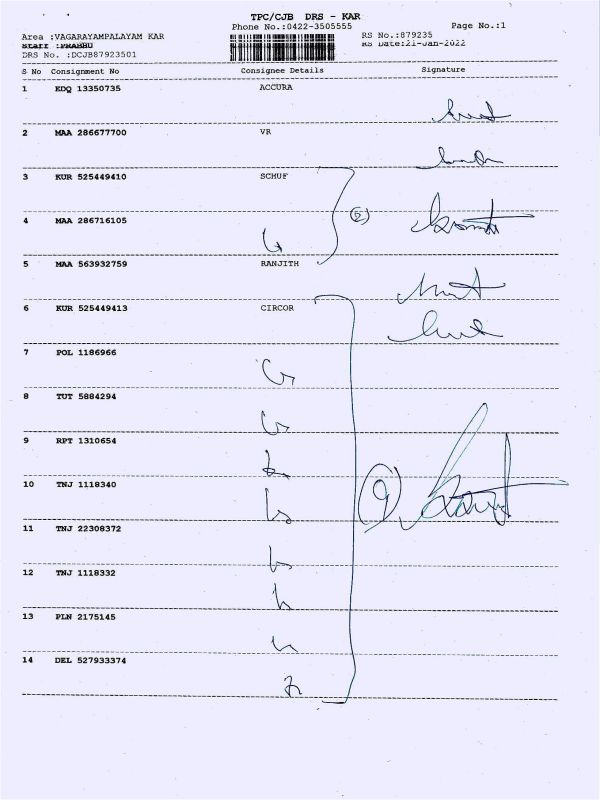 TPC/CJB DRS - KAR
Phone No.:0422-3505555 Page No.:1
Area :VAGARAYAMPALAYAM KAR RS No.:879235
Staff :PRABHU RS Date:21-Jan-2022
DRS No. :DCJB87923501
S No Consignment No Consignee Details Signature
1 EDQ 13350735 ACCURA
2 MAA 286677700 VR
3 KUR 525449410 SCHUF
(2)
4 MAA 286716105
5 MAA 563932759 RANJITH
6 KUR 525449413 CIRCOR
7 POL 1186966
8 TUT 5884294
9 RPT 1310654
10 TNJ 1118340
(9)
11 TNJ 22308372
12 TNJ 1118332
13 PLN 2175145
14 DEL 527933374